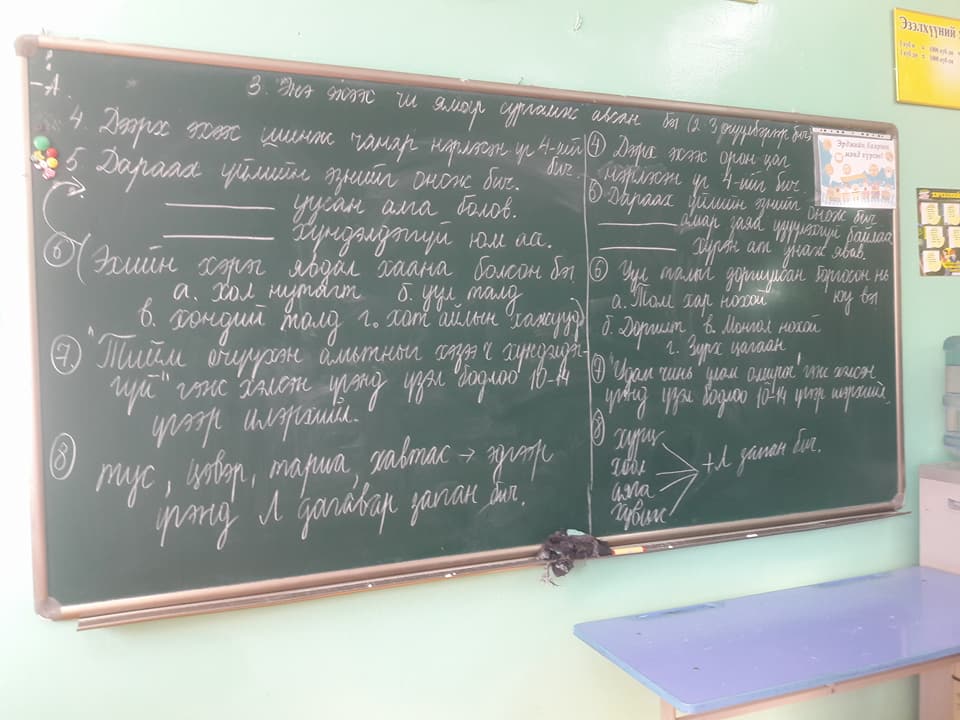 -А.
3. Энэ эхээс чи ямар сургамж авсан бэ (2-3 өгүүлбэрээр бич)
4. Дээрх эхэж шинж чанар нэрлэсэн үг 4-ийг бич.
5 Дараах үйлийн эзнийг онож бич.
уусан алга болов.
хүндэлдэггүй юм аа.
6 (Эхийн хэрэг явдал хаана болсон бэ
а. хол нутагт б. уул талд
в. хөндий талд г. хот айлын хажууд)
7. "Тийм өчүүхэн амьтныг хэзээ ч хүндэлдэг-
гүй" гэж хэлсэн үгэнд үзэл бодлоо 10-14
үгээр илэрхийл.
8 тус, цэвэр, тариа, хавтас → эдгээр
үгэнд Л дагавар залган бич.
4 Дээрх эхээс орон цаг
нэрлэсэн үг 4-ийг бич.
5 Дараах үйлийн эзнийг онож бич
амар заяа үзүүлэхгүй байлаа
хүрэн ат унаж явав.
6 Уул талыг доргилтон гаргасан нь юу вэ?
а. Том хар нохой
б. Доргилт в. Монгол нохой
г. Зүрх цагаан
7 "Удам чинь улам олширч" гэж хэлсэн
үгэнд үзэл бодлоо 10-14 үгээр илэрхийл.
8 хурц
хоол
аяга
хувцас
+Л залган бич.
Эрдмийн баярын
мэнд хүргэе!
Эзэлхүүний